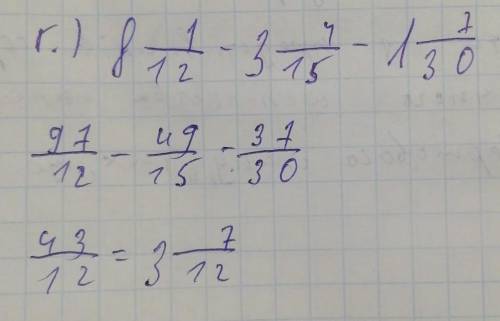 г.) 8 1/12 - 3 4/15 - 1 7/30
97/12 - 49/15 - 37/30
43/12 = 3 7/12